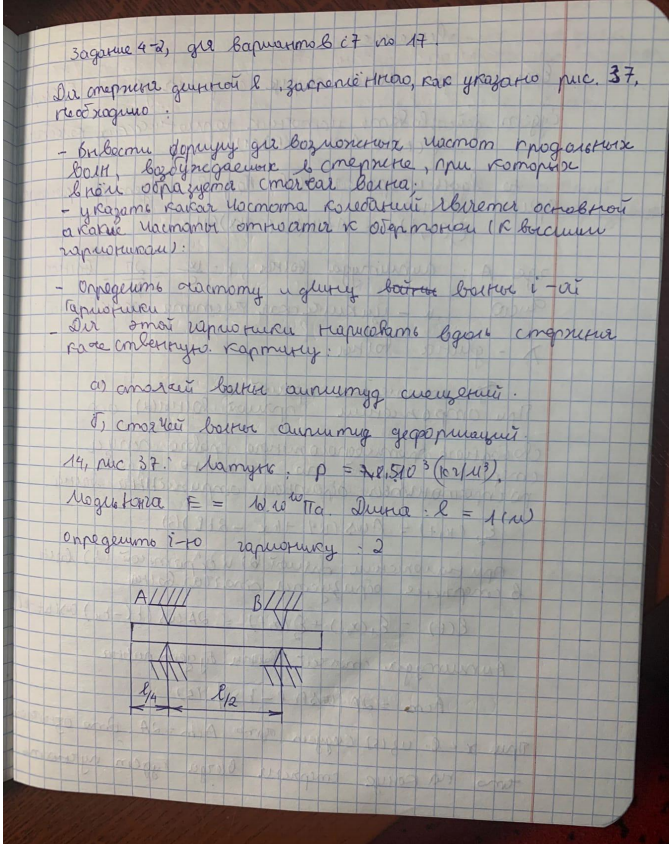 Задание 4-2, для вариантов с 7 по 17.
Для стержня длинной l закреплённого, как указано рис. 37,
необходимо:
- Вывести формулу для возможных частот продольных
волн, возбуждаемых в стержне, при которых
в нём образуется стоячая волна.
- указать какая частота колебаний является основной
а какие частоты относятся к обертонам (к высшим
гармоникам):
- Определить частоту и длину волны i-ой
Гармоники
- Для этой гармоники нарисовать вдоль стержня
качественную картину:
а) стоячей волны амплитуд смещений.
б) стоячей волны амплитуд деформаций.
14, рис 37: Латунь: ρ = 8,5·10³ (кг/м³).
Модуль Юнга E = 12·10¹⁰ Па. Длина: l = 1 (м)
Определить i-ю гармонику: 2
A B
l/4 l/2